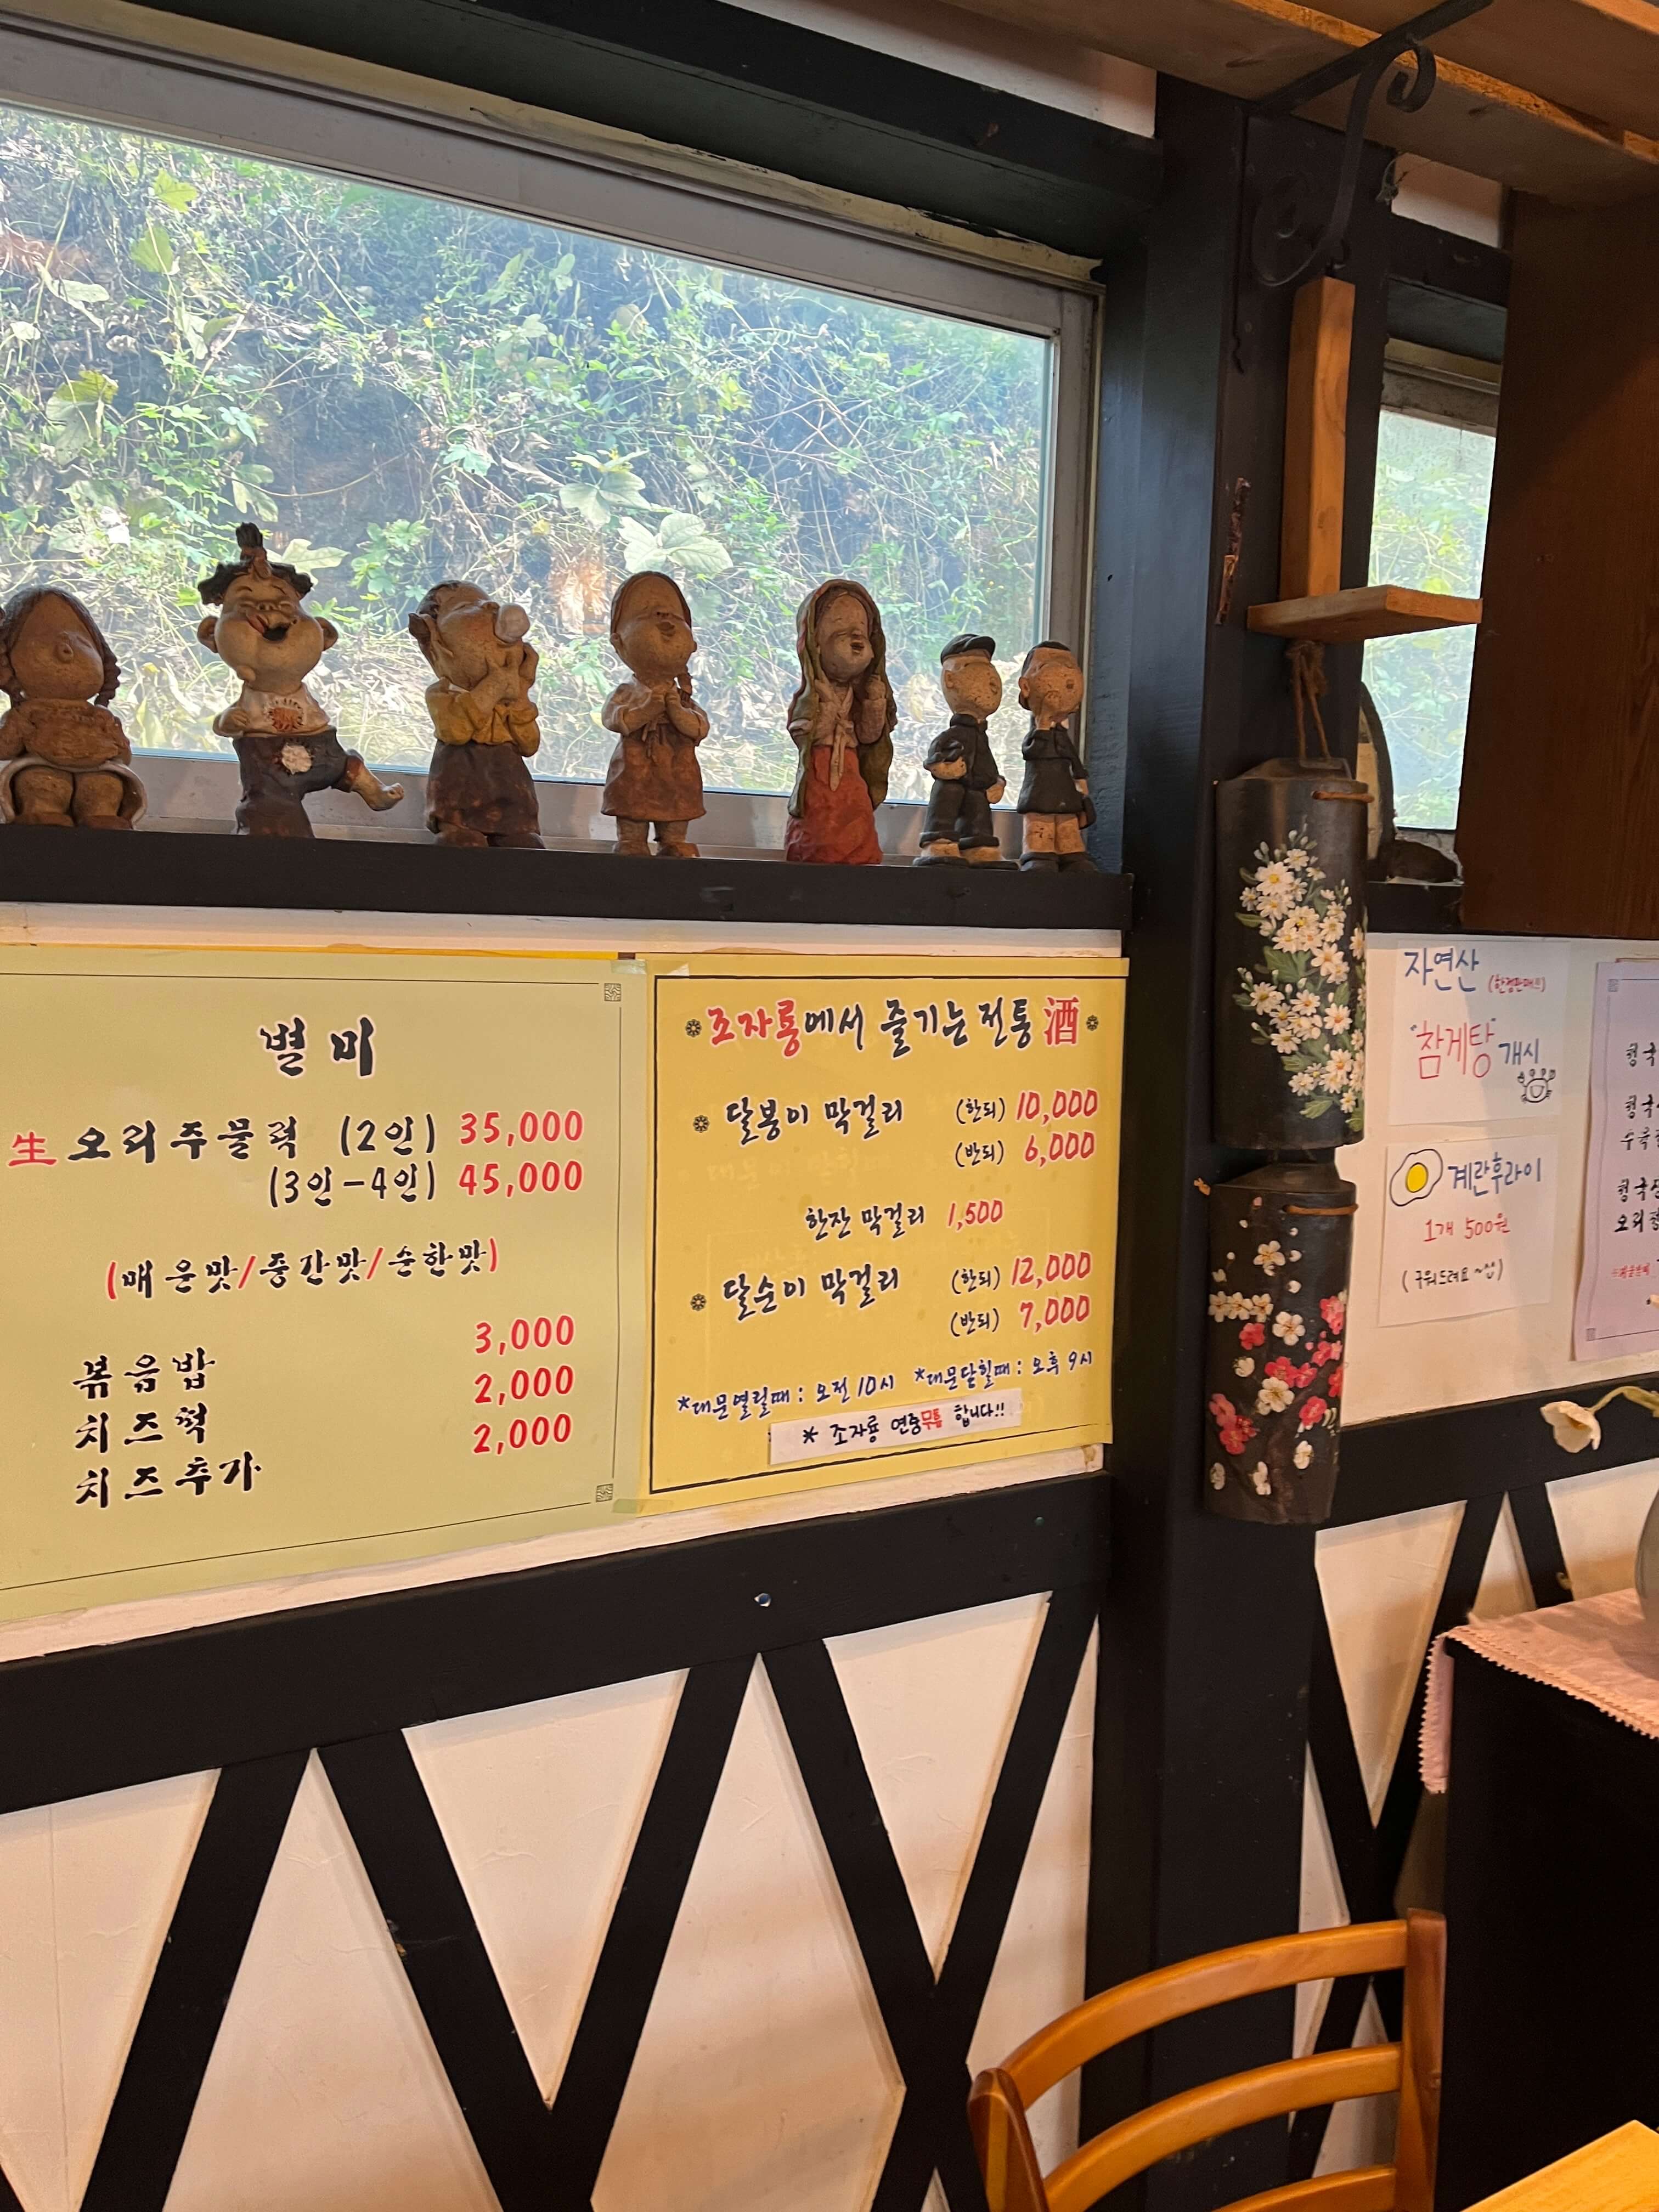 별미
生 오리주물럭 (2인) 35,000
(3인-4인) 45,000
(매운맛/중간맛/순한맛)
볶음밥 3,000
치즈떡 2,000
치즈추가 2,000
조자룡에서 즐기는 전통 酒
달봉이 막걸리 (한되) 10,000
(반되) 6,000
한잔 막걸리 1,500
달순이 막걸리 (한되) 12,000
(반되) 7,000
*대문열릴때 : 오전 10시 *대문닫힐때 : 오후 9시
* 조자룡 연중무휴 합니다!!
자연산 (한정판매!!!)
"참게탕" 개시
계란후라이
1개 500원
(구워드려요~^^)